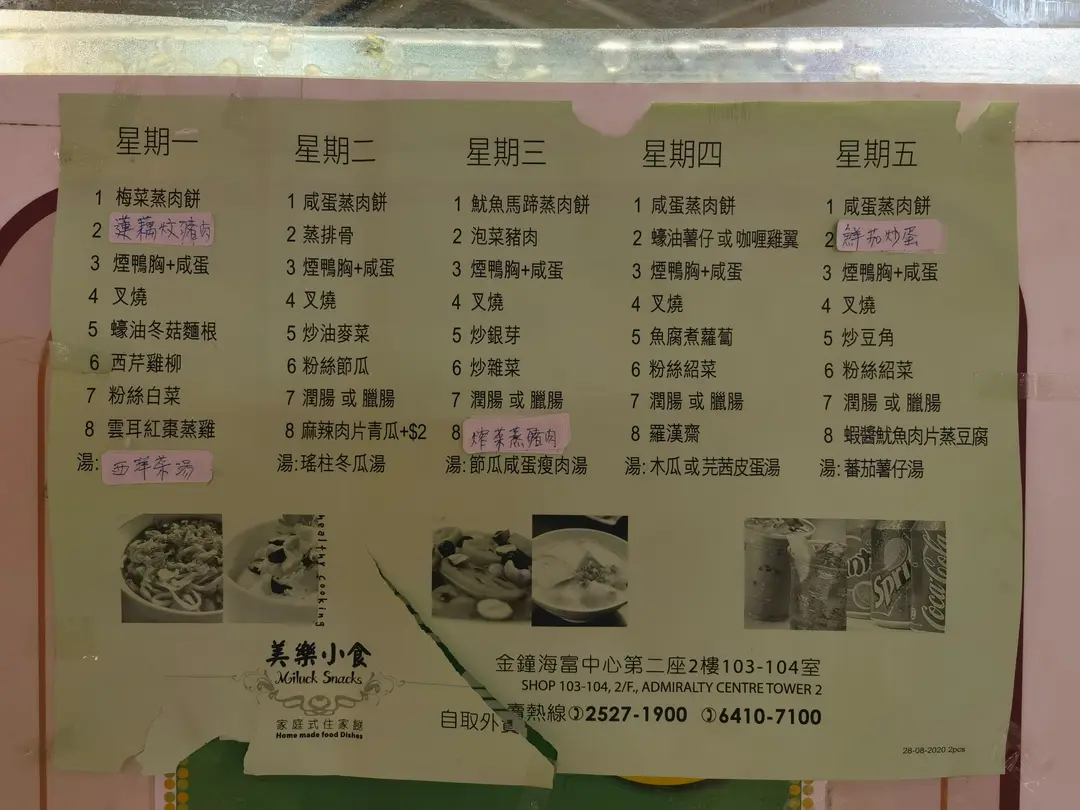 星期一
1 梅菜蒸肉餅
2 蓮藕炆豬肉
3 煙鴨胸+咸蛋
4 叉燒
5 蠔油冬菇麵根
6 西芹雞柳
7 粉絲白菜
8 雲耳紅棗蒸雞
湯: 西洋菜湯
星期二
1 咸蛋蒸肉餅
2 蒸排骨
3 煙鴨胸+咸蛋
4 叉燒
5 炒油麥菜
6 粉絲節瓜
7 潤腸 或 臘腸
8 麻辣肉片青瓜+$2
湯:瑤柱冬瓜湯
星期三
1 魷魚馬蹄蒸肉餅
2 泡菜豬肉
3 煙鴨胸+咸蛋
4 叉燒
5 炒銀芽
6 炒雜菜
7 潤腸 或 臘腸
8 榨菜蒸豬肉
湯:節瓜咸蛋瘦肉湯
星期四
1 咸蛋蒸肉餅
2 蠔油薯仔 或 咖喱雞翼
3 煙鴨胸+咸蛋
4 叉燒
5 魚腐煮蘿蔔
6 粉絲紹菜
7 潤腸 或 臘腸
8 羅漢齋
湯:木瓜 或 芫茜皮蛋湯
星期五
1 咸蛋蒸肉餅
2 鮮茄炒蛋
3 煙鴨胸+咸蛋
4 叉燒
5 炒豆角
6 粉絲紹菜
7 潤腸 或 臘腸
8 蝦醬魷魚肉片蒸豆腐
湯:蕃茄薯仔湯
healthy cooking
Sprite
Coca-Cola
美樂小食
Miluck Snacks
家庭式住家餸
Home made food Dishes
金鐘海富中心第二座2樓103-104室
SHOP 103-104, 2/F., ADMIRALTY CENTRE TOWER 2
自取外賣熱線 2527-1900 6410-7100
28-08-2020 2pcs